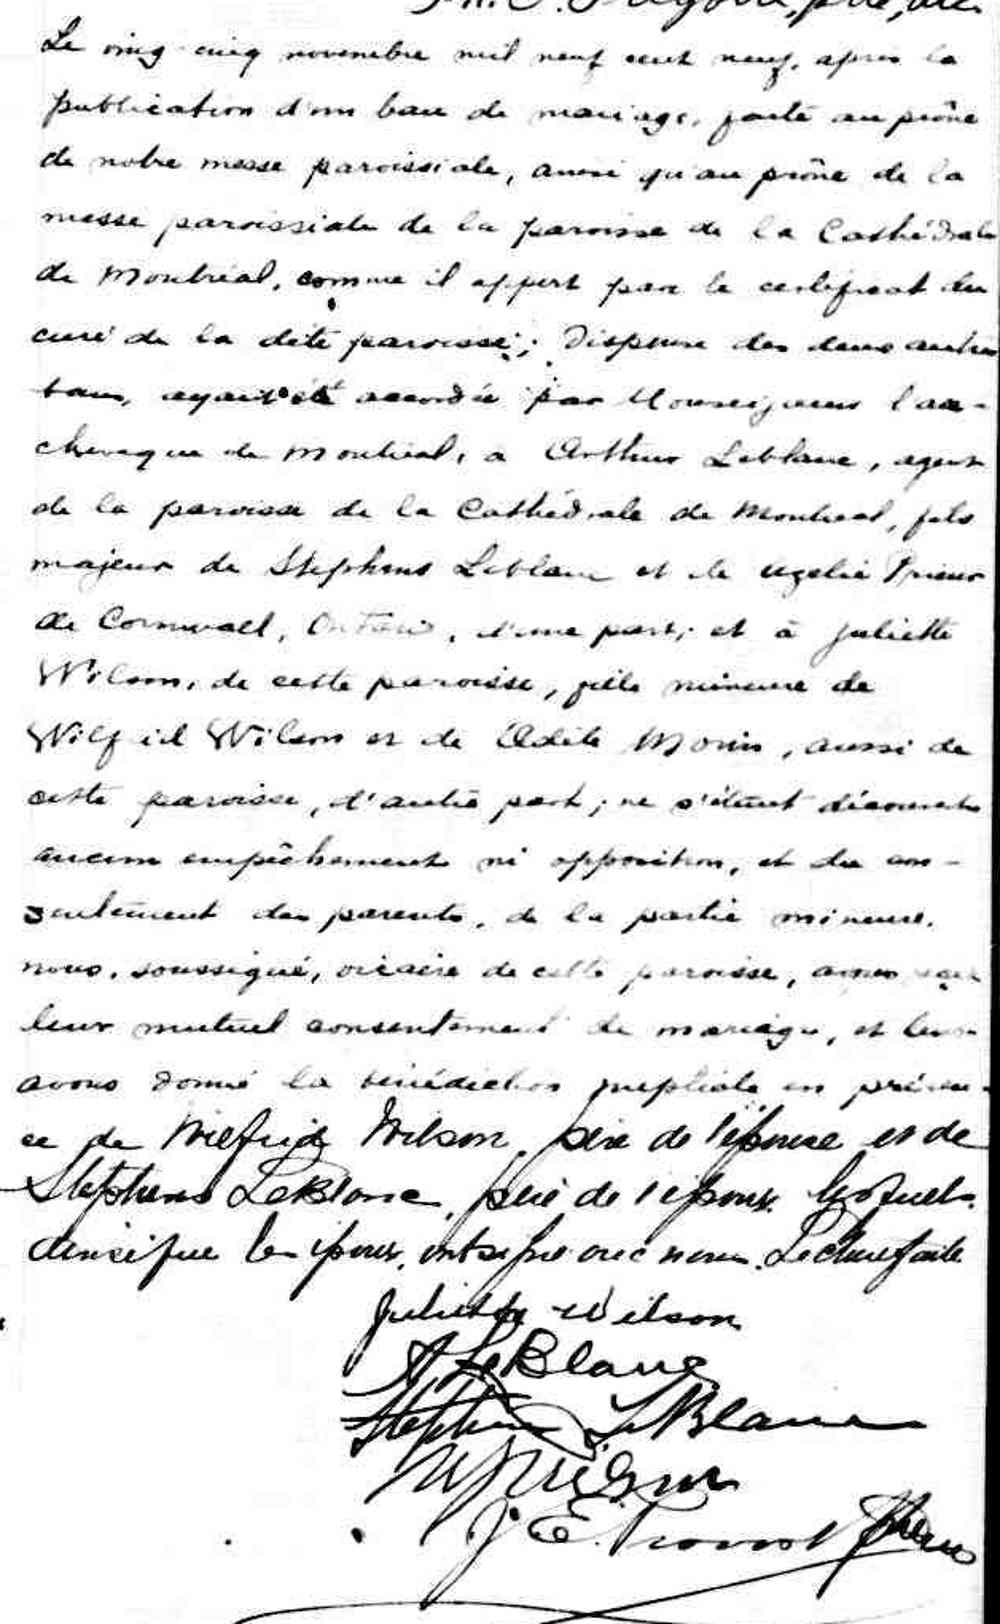 Le ving-cinq novembre mil neuf cent neuf, après la
publication d'un ban de mariage, faite au prône
de notre messe paroissiale, ainsi qu'au prône de la
messe paroissiale de la paroisse de la Cathédrale
de Montréal, comme il appert par le certificat du
curé de la dite paroisse; Dispense des deux autres
bans, ayant été accordée par Monseigneur l'ar-
chevêque de Montréal, à Arthur Leblanc, agent
de la paroisse de la Cathédrale de Montreal, fils
majeur de Stephens Leblanc et de Prieur
de Cornwall, Ontario, d'une part; et à Juliette
Wilson, de cette paroisse, fille mineure de
Wilfrid Wilson et de Morin, aussi de
cette paroisse, d'autre part; ne s'étant découvert
aucun empêchement ni opposition, et du con-
sentement des parents, de la partie mineure,
nous, soussigné, vicaire de cette paroisse, avons reçu
leur mutuel consentement de mariage, et leur
avons donné la bénédiction nuptiale en présen-
ce de Wilfrid Wilson, père de l'épouse et de
Stephens LeBlanc, père de l'époux. lesquels
ainsi que les époux, ont signé avec nous. Lecture faite
Juliette Wilson
A LeBlanc
Stephens LeBlanc
W Wilson
J. E.